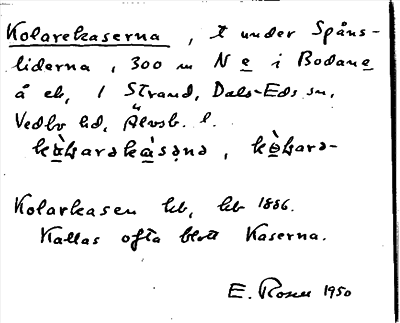 Kolarekaserna, t under Spåns-
liderna, 300 m N e i Bodane
å ek, 1 Strand, Dals-Eds sn,
Vedbo hd, Älvsb. l.
Kolarkasen hb, hb 1886.
Kallas ofta blott Kaserna.
E. Rosell 1950